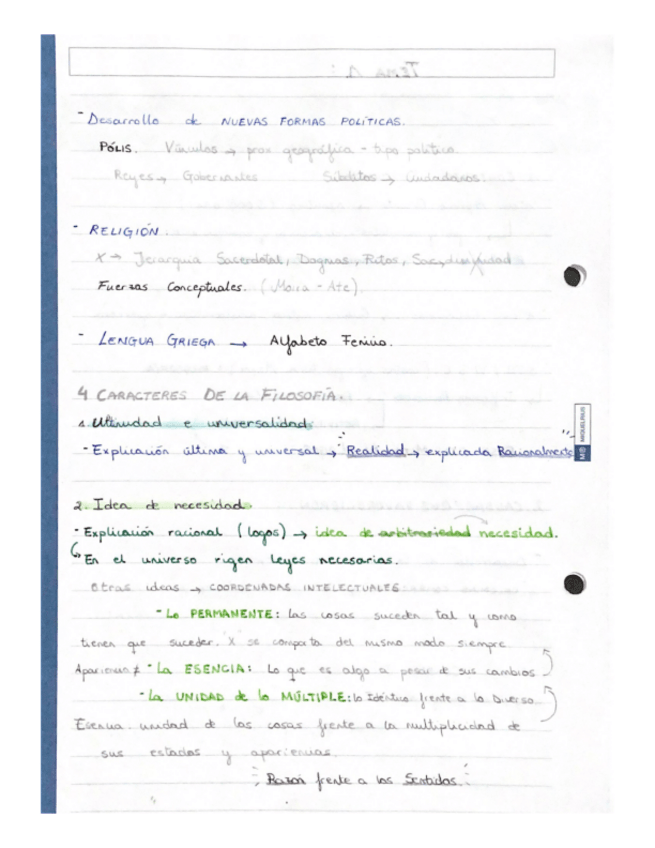 TEMA 1:
- Desarrollo de NUEVAS FORMAS POLÍTICAS.
PÓLIS. Vínculos → prox geográfica - tipo político.
Reyes → Gobernantes Súbditos → Ciudadanos.
- RELIGIÓN.
X → Jerarquía Sacerdotal, Dogmas, Ritos,
Fuerzas Conceptuales. (Moira - Ate)
- LENGUA GRIEGA → Alfabeto Fenicio.
4 CARACTERES DE LA FILOSOFÍA.
1. Ultimidad e universalidad
- Explicación última y universal → Realidad → explicada Racionalmente
MIQUELRIUS
2. Idea de necesidad
- Explicación racional (logos) → idea de arbitrariedad necesidad.
En el universo rigen leyes necesarias.
Otras ideas → COORDENADAS INTELECTUALES
- Lo PERMANENTE: las cosas suceden tal y como
tienen que suceder. X se comporta del mismo modo siempre
Apariencia ≠ - La ESENCIA: Lo que es algo a pesar de sus cambios
- La UNIDAD de lo MÚLTIPLE: lo Idéntico frente a lo Diverso
Esencia. unidad de las cosas frente a la multiplicidad de
sus estados y apariencias.
Razón frente a los Sentidos.